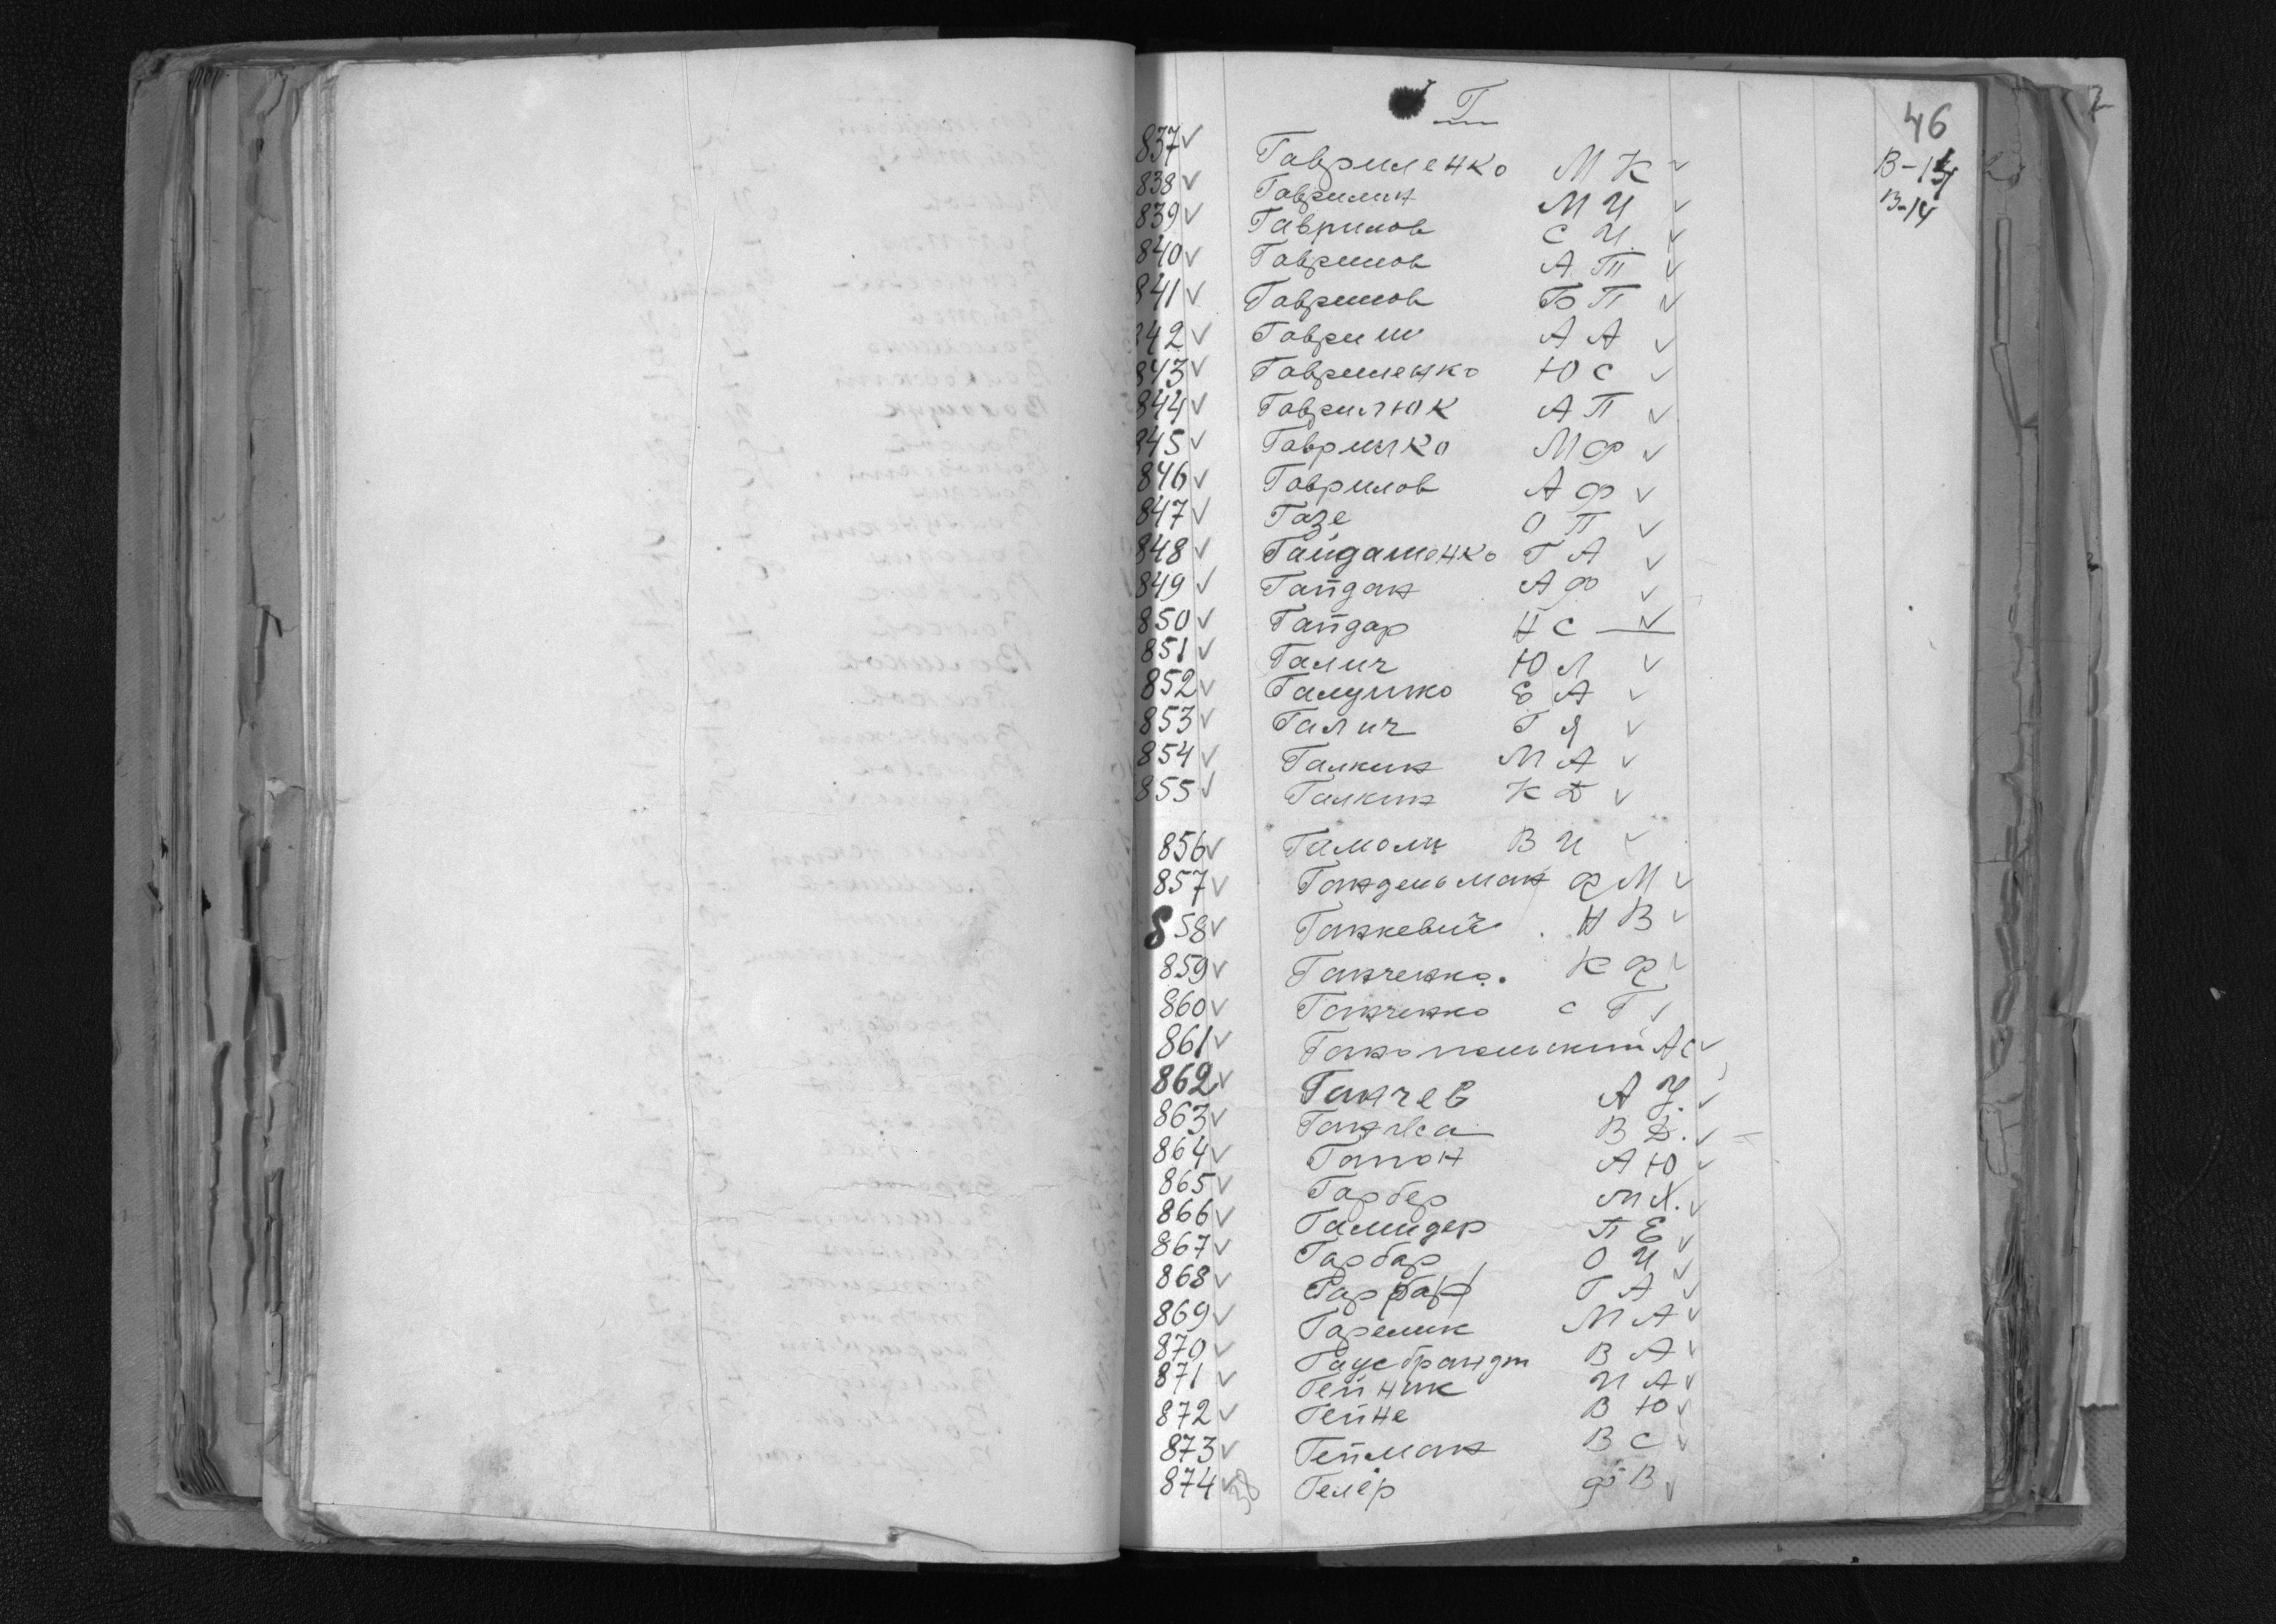 Г
46
В-14
837 Гавриленко М К
838 Гаврилин М И
839 Гаврилов С И
840 Гаврилов А Т
841 Гаврилов Б П
842 Гавриш А А
843 Гавриленко Ю С
844 Гаврилюк А П
845 Гаврилко М Ф
846 Гаврилов А Ф
847 Газе О П
848 Гайдашенко Г А
849 Гайдан А Ф
850 Гайдар Н С
851 Галич Ю Л
852 Галушко Е А
853 Галич Г Я
854 Галкин М А
855 Галкин К Д
856 В И
857 Гандельман Ф М
858 Ганкевич Н В
859 Ганченко К Ф
860 Ганченко С Г
861 А С
862 Ганчев А
863 В Д.
864 Гапон А Ю
865 Гарбер М Х.
866 П Е
867 Гарбар О И
868 Гарбар Г А
869 Гарелик М А
870 Гаусбрандт В А
871 Гейник И А
872 Гейне В Ю
873 Гейман В С
874 Гелер Ф В